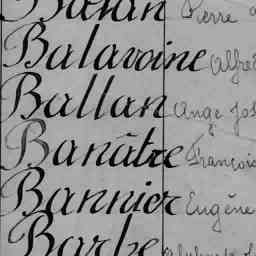 Balan Pierre
Balavoine Alfre
Ballan Ange Jos
Banâtre François
Bannier Eugène
Barbe